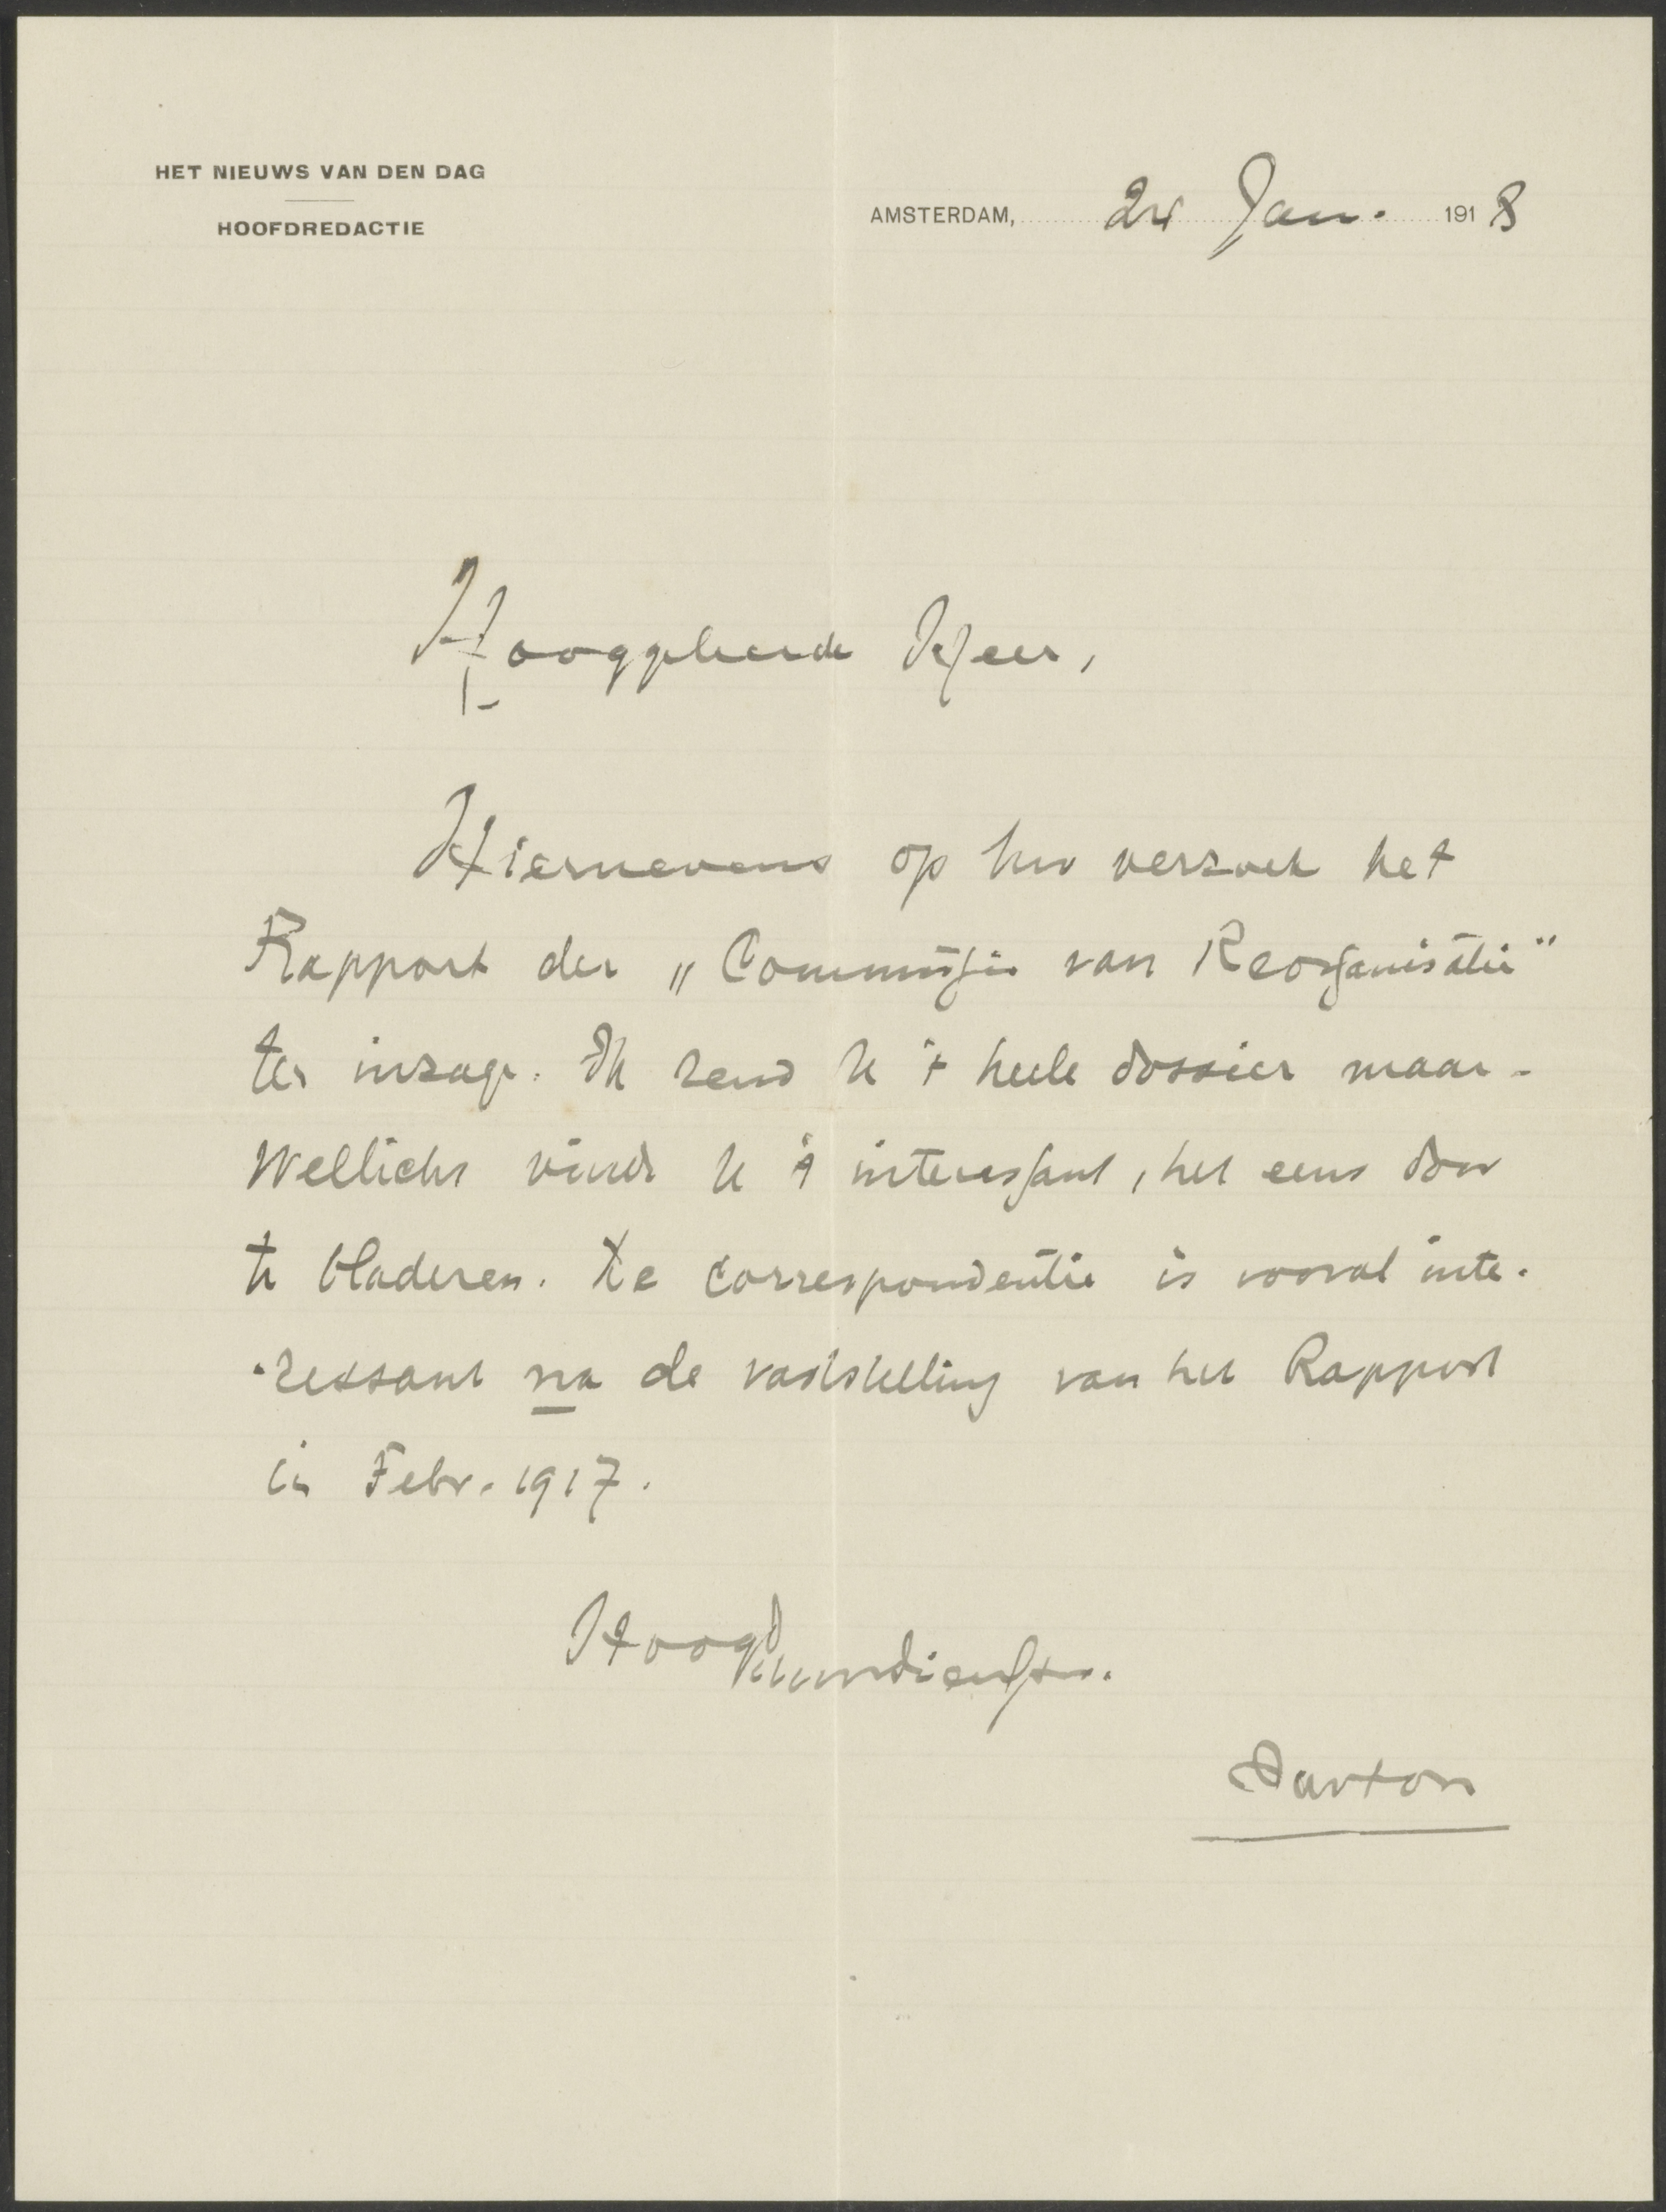 HET NIEUWS VAN DEN DAG
HOOFDREDACTIE
AMSTERDAM, 24 Jan. 1918
Hooggeleerde Heer,
Hiernevens op Uw verzoek het
Rapport der „Commissie van Reorganisatie"
ter inzage. Ik zend U 't heele dossier maar.
Wellicht vindt U 't interessant, het eens door
te bladeren. De correspondentie is vooral inte-
ressant na de vaststelling van het Rapport
in Febr. 1917.
Hoogd